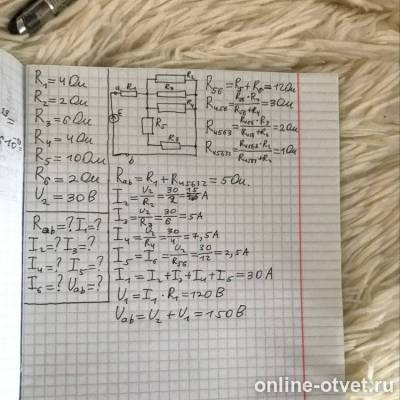 R₁=4Ом
R₂=2Ом
R₃=6Ом
R₄=4Ом
R₅=10Ом
R₆=2Ом
U₂=30В
Rab=? I₁=?
I₂=? I₃=?
I₄=? I₅=?
I₆=? Uab=?
a R₁
R₂
R₃
R₄
R₅
R₆
E
b
R₅₆=R₅+R₆=12Ом
R₄₅₆=R₅₆·R₄/R₅₆+R₄=3Ом
R₄₅₆₃=R₄₅₆·R₃/R₄₅₆+R₃=2Ом
R₄₅₆₃₂=R₄₅₆₃·R₂/R₄₅₆₃+R₂=1Ом
Rab=R₁+R₄₅₆₃₂=5Ом.
I₂=U₂/R₂=30/2=15A
I₃=U₂/R₃=30/6=5A
I₄=U₂/R₄=30/4=7,5A
I₅=I₆=U₂/R₅₆=30/12=2,5A
I₁=I₂+I₃+I₄+I₅=30A
U₁=I₁·R₁=120В
Uab=U₂+U₁=150В
online-otvet.ru